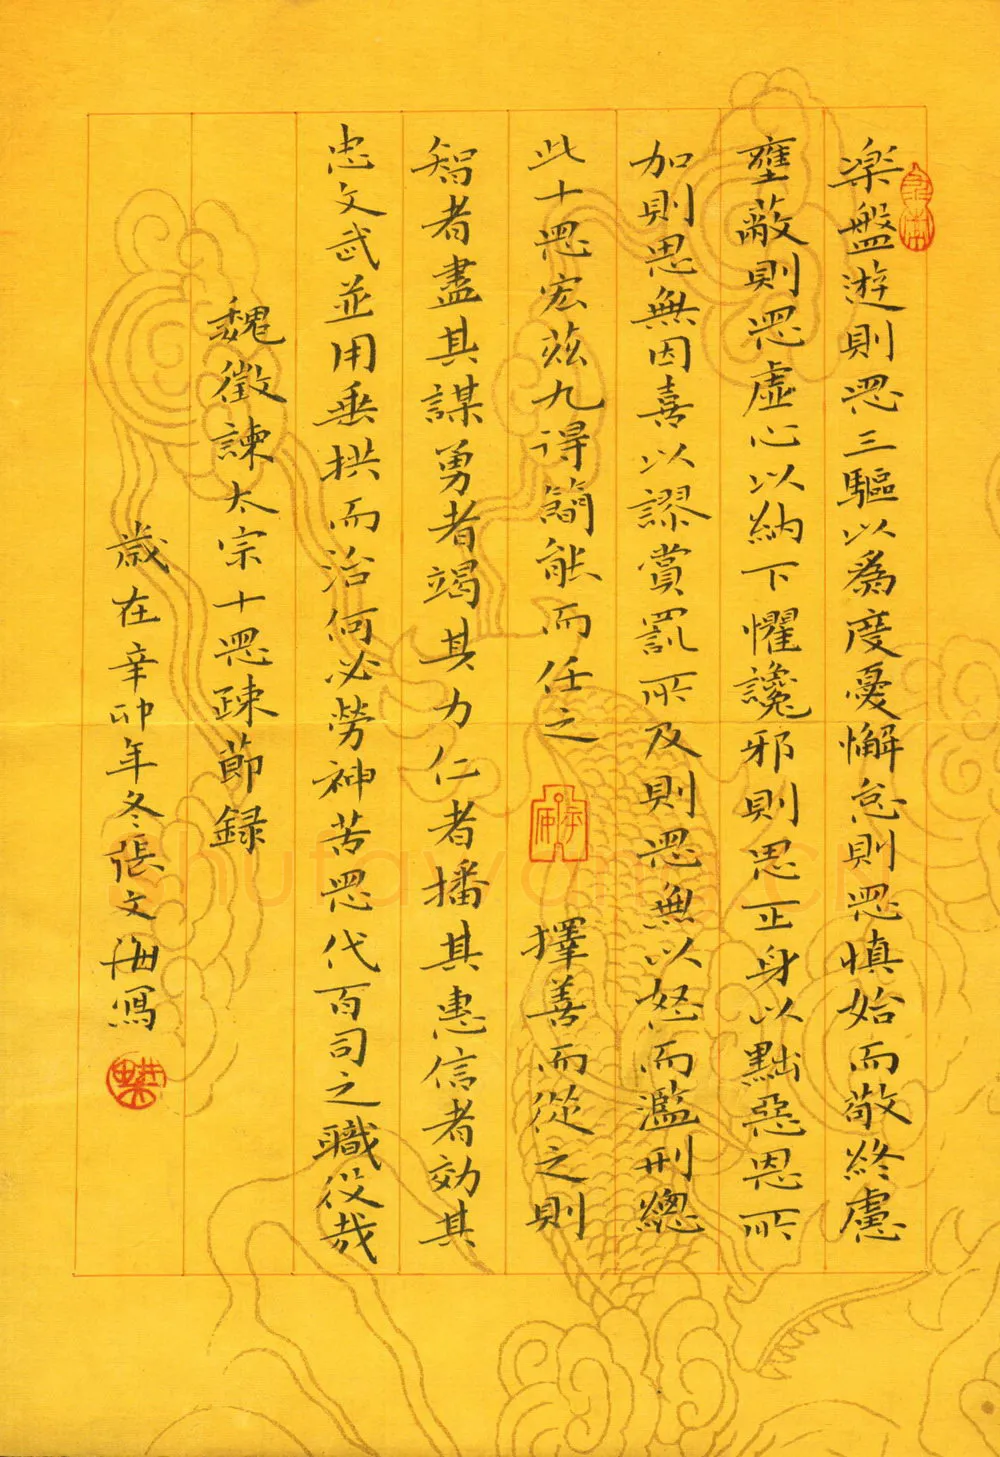 楽盤遊則思三驅以為度憂懈怠則思慎始而敬終慮
壅蔽則思虛心以納下懼讒邪則思正身以黜惡恩所
加則思無因喜以謬賞罰所及則思無以怒而濫刑總
此十思宏茲九得簡能而任之擇善而從之則
智者盡其謀勇者竭其力仁者播其惠信者効其
忠文武並用垂拱而治何必勞神苦思代百司之職役哉
魏徵諫太宗十思疎節録
歲在辛卯年冬張文海寫
shufawang.cn